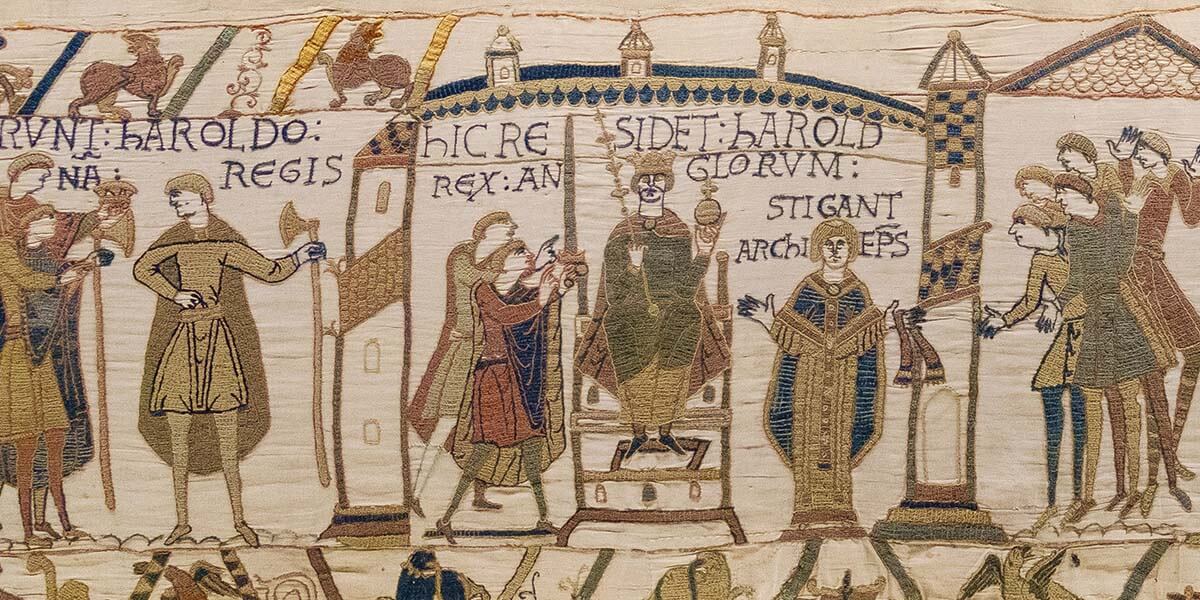 RVNT: hAROLDO:
NA̅: REGIS
hIC RE SIDET: hAROLD
REX: AN GLORVM:
STIGANT
ARChI EP̅S